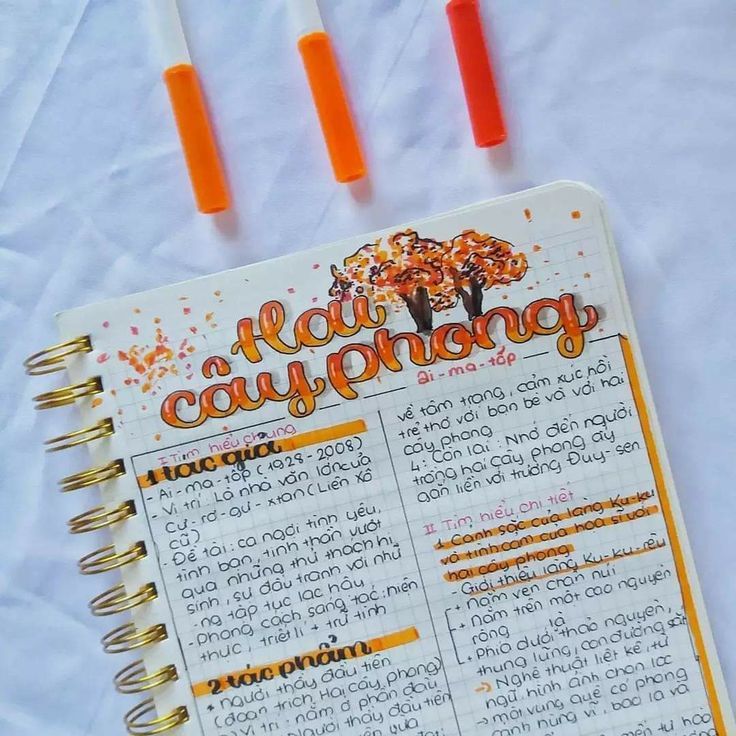 Hai
cây phong
ai-ma-tốp
I Tìm hiểu chung
1 tác giả
- Ai-ma-tốp (1928-2008)
- Vị trí: Là nhà văn lớn của
Cư-rơ-gư-xtan (Liên Xô
cũ)
- Đề tài: ca ngợi tình yêu,
tình bạn, tinh thần vượt
qua những thử thách hi
sinh, sự đấu tranh với nhữ
-ng tập tục lạc hậu
- Phong cách sáng tác: hiện
thực, triết lí + trữ tình
2 tác phẩm
* Người thầy đầu tiên
(đoạn trích Hai cây phong)
+) Vị trí: nằm ở phần đầu
Người thầy đầu tiên
về tâm trạng, cảm xúc hồi
trẻ thơ với bạn bè và với hai
cây phong
4: Còn lại: Nhớ đến người
trồng hai cây phong ấy
gắn liền với trường Đuy-sen
II Tìm hiểu chi tiết
1 Cảnh sắc của làng Ku-ku
và tình cảm của hoạ sĩ với
hai cây phong
- Giới thiệu làng Ku-ku-rêu
+ Nằm ven chân núi
+ Nằm trên một cao nguyên
rộng
+ Phía dưới là thảo nguyên,
thung lũng, con đường sắt
→ Nghệ thuật liệt kê, từ
ngữ, hình ảnh chọn lọc
→ một vùng quê có phong
cảnh hùng vĩ, bao la và